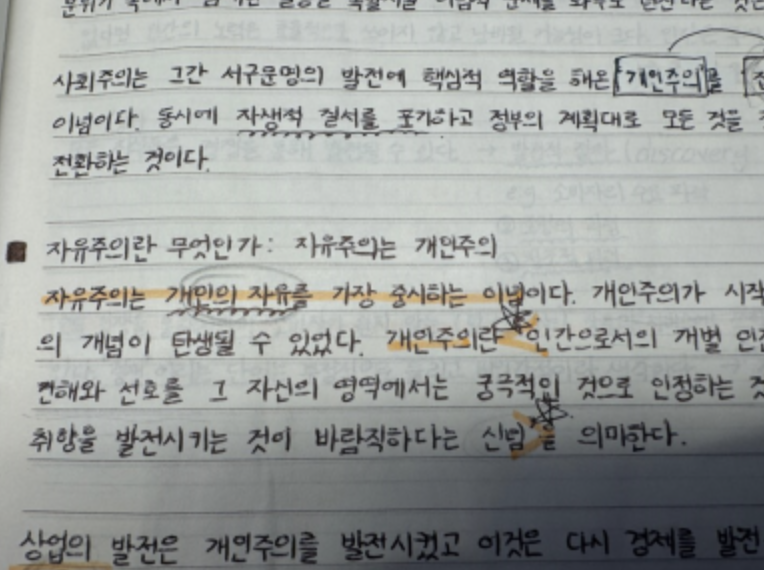 사회주의는 그간 서구문명의 발전에 핵심적 역할을 해온 개인주의를
이념이다. 동시에 자생적 질서를 포기하고 정부의 계획대로 모든 것을
전환하는 것이다.
자유주의란 무엇인가: 자유주의는 개인주의
자유주의는 개인의 자유를 가장 중시하는 이념이다. 개인주의가 시작
의 개념이 탄생될 수 있었다. 개인주의란 '인간으로서의 개별 인간
견해와 선호를 그 자신의 영역에서는 궁극적인 것으로 인정하는
취향을 발전시키는 것이 바람직하다는 신념'을 의미한다.
상업의 발전은 개인주의를 발전시켰고 이것은 다시 경제를 발전